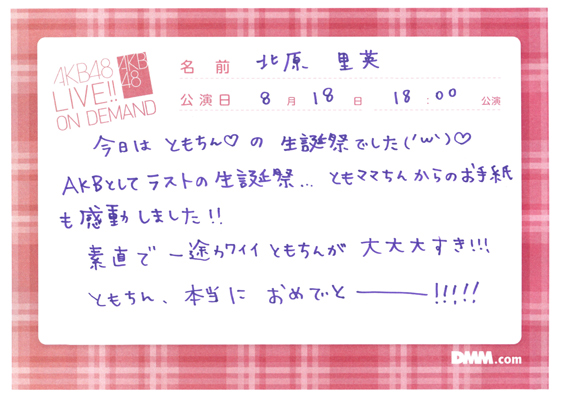 AKB48
LIVE!!
ON DEMAND
AKB
48
名前 北原 里英
公演日 8月18日 18:00公演
今日は ともちん♡の 生誕祭でした('ω')♡
AKBとしてラストの生誕祭... ともママちんからのお手紙
も感動しました!!
素直で 一途カワイイ ともちんが 大大大すき!!!
ともちん、本当に おめでと――!!!!!
DMM.com